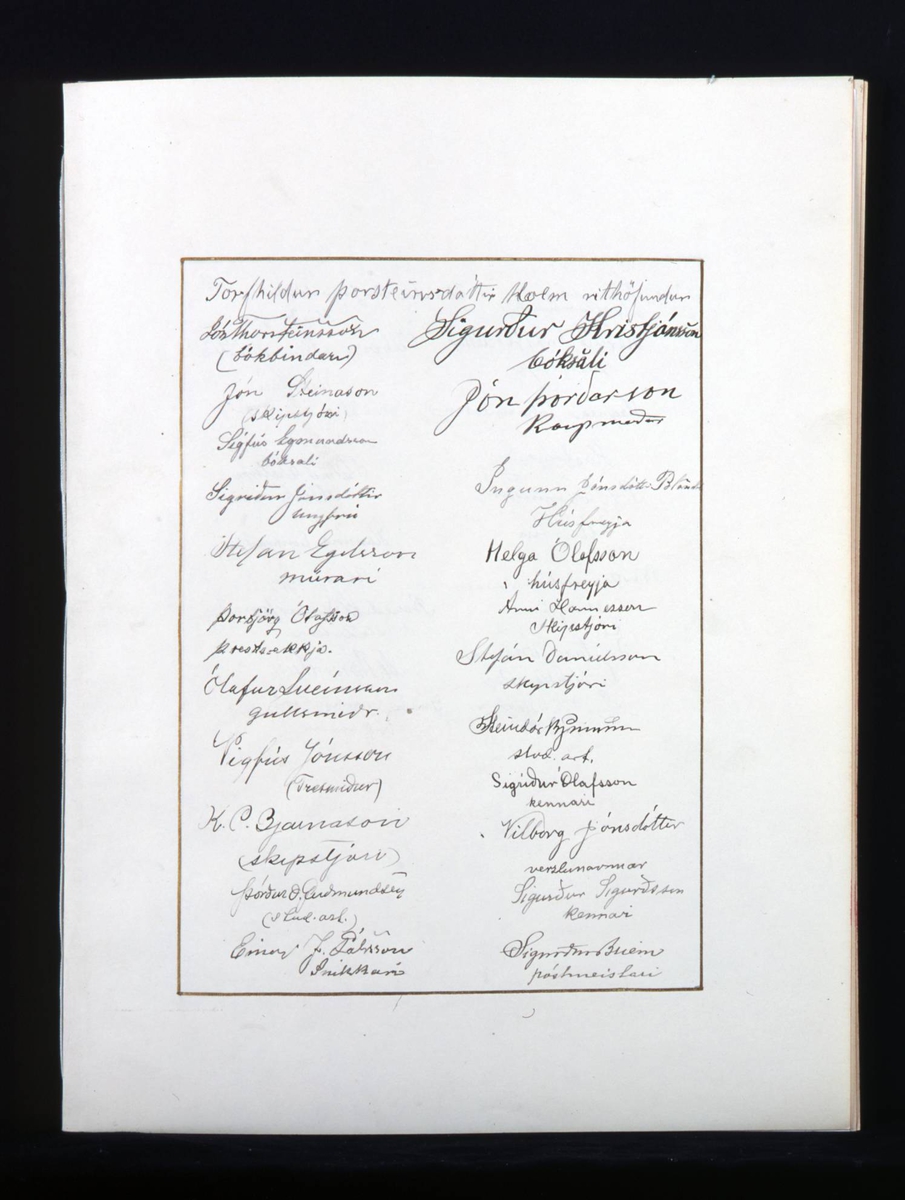 Torfhildur Þorsteinsdóttir Holm rithöfundur
Jón Thorsteinsson
(bókbindari)
Jón Steinason
(skipstjóri)
Sigfús Eymundsson
bóksali
Sigríður Jónsdóttir
ungfrú
Stefan Egilsson
múrari
Þorbjörg Ólafsson
prestsekkja.
Ólafur Sveinsson
gullsmiðr.
Vigfús Jónsson
(Tresmiður)
K. P. Bjarnason
(skipstjóri)
Þórður J. Guðmundsen
(stud. art.)
Einar J. Pálsson
Snikkari
Sigurður Kristjánsson
bóksali
Jón Þórðarson
Kaupmaður
Ingunn Jónsdóttir Blöndal
Húsfreyja
Helga Ólafsson
húsfreyja
Árni Hannesson
Skipstjóri
Stefán Daníelsson
skipstjóri
Steindór
stud. art.
Sigríður Ólafsson
kennari
Vilborg Jónsdóttir
verzlunarmær
Sigurður Sigurðsson
kennari
Sigurður Briem
póstmeistari